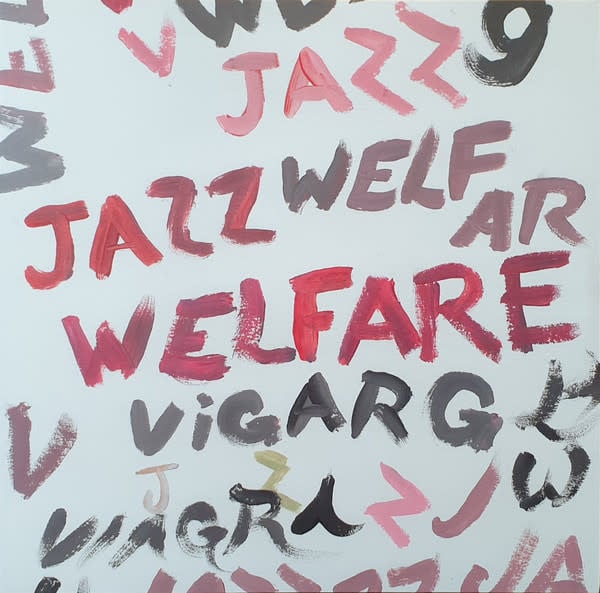 JAZZ 9
JAZZ WELF
AR
WELFARE
ViGARG
J Z
VIAGRA Z J W